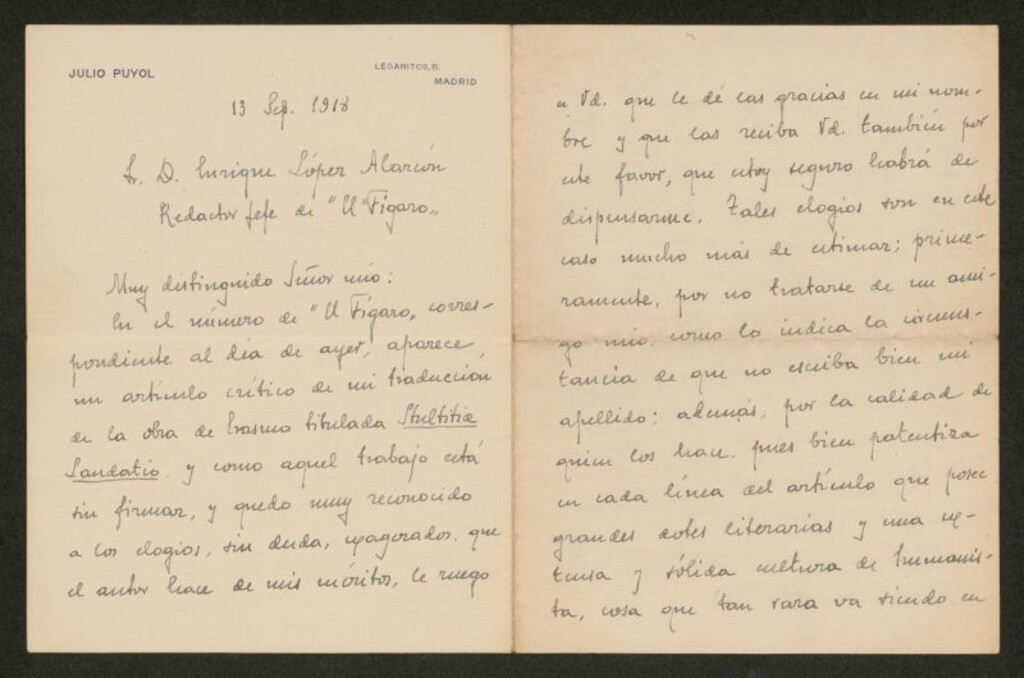 JULIO PUYOL
LEGANITOS, 8.
MADRID
13 Sep. 1918
Sr. D. Enrique López Alarcón
Redactor jefe de "El Fígaro"
Muy distinguido Señor mío:
En el número de "El Fígaro", corres-
pondiente al día de ayer, aparece
un artículo crítico de mi traducción
de la obra de Erasmo titulada Stultitiæ
Laudatio, y como aquel trabajo está
sin firmar, y quedo muy reconocido
a los elogios, sin duda, exagerados, que
el autor hace de mis méritos, le ruego
a Vd. que le dé las gracias en mi nom-
bre y que las reciba Vd. también por
este favor, que estoy seguro habrá de
dispensarme. Tales elogios son en este
caso mucho más de estimar; prime-
ramente, por no tratarse de un ami-
go mío, como lo indica la circuns-
tancia de que no escriba bien mi
apellido; además, por la calidad de
quien los hace, pues bien patentiza
en cada línea del artículo que posee
grandes dotes literarias y una ex-
tensa y sólida cultura de humanis-
ta, cosa que tan rara va siendo en